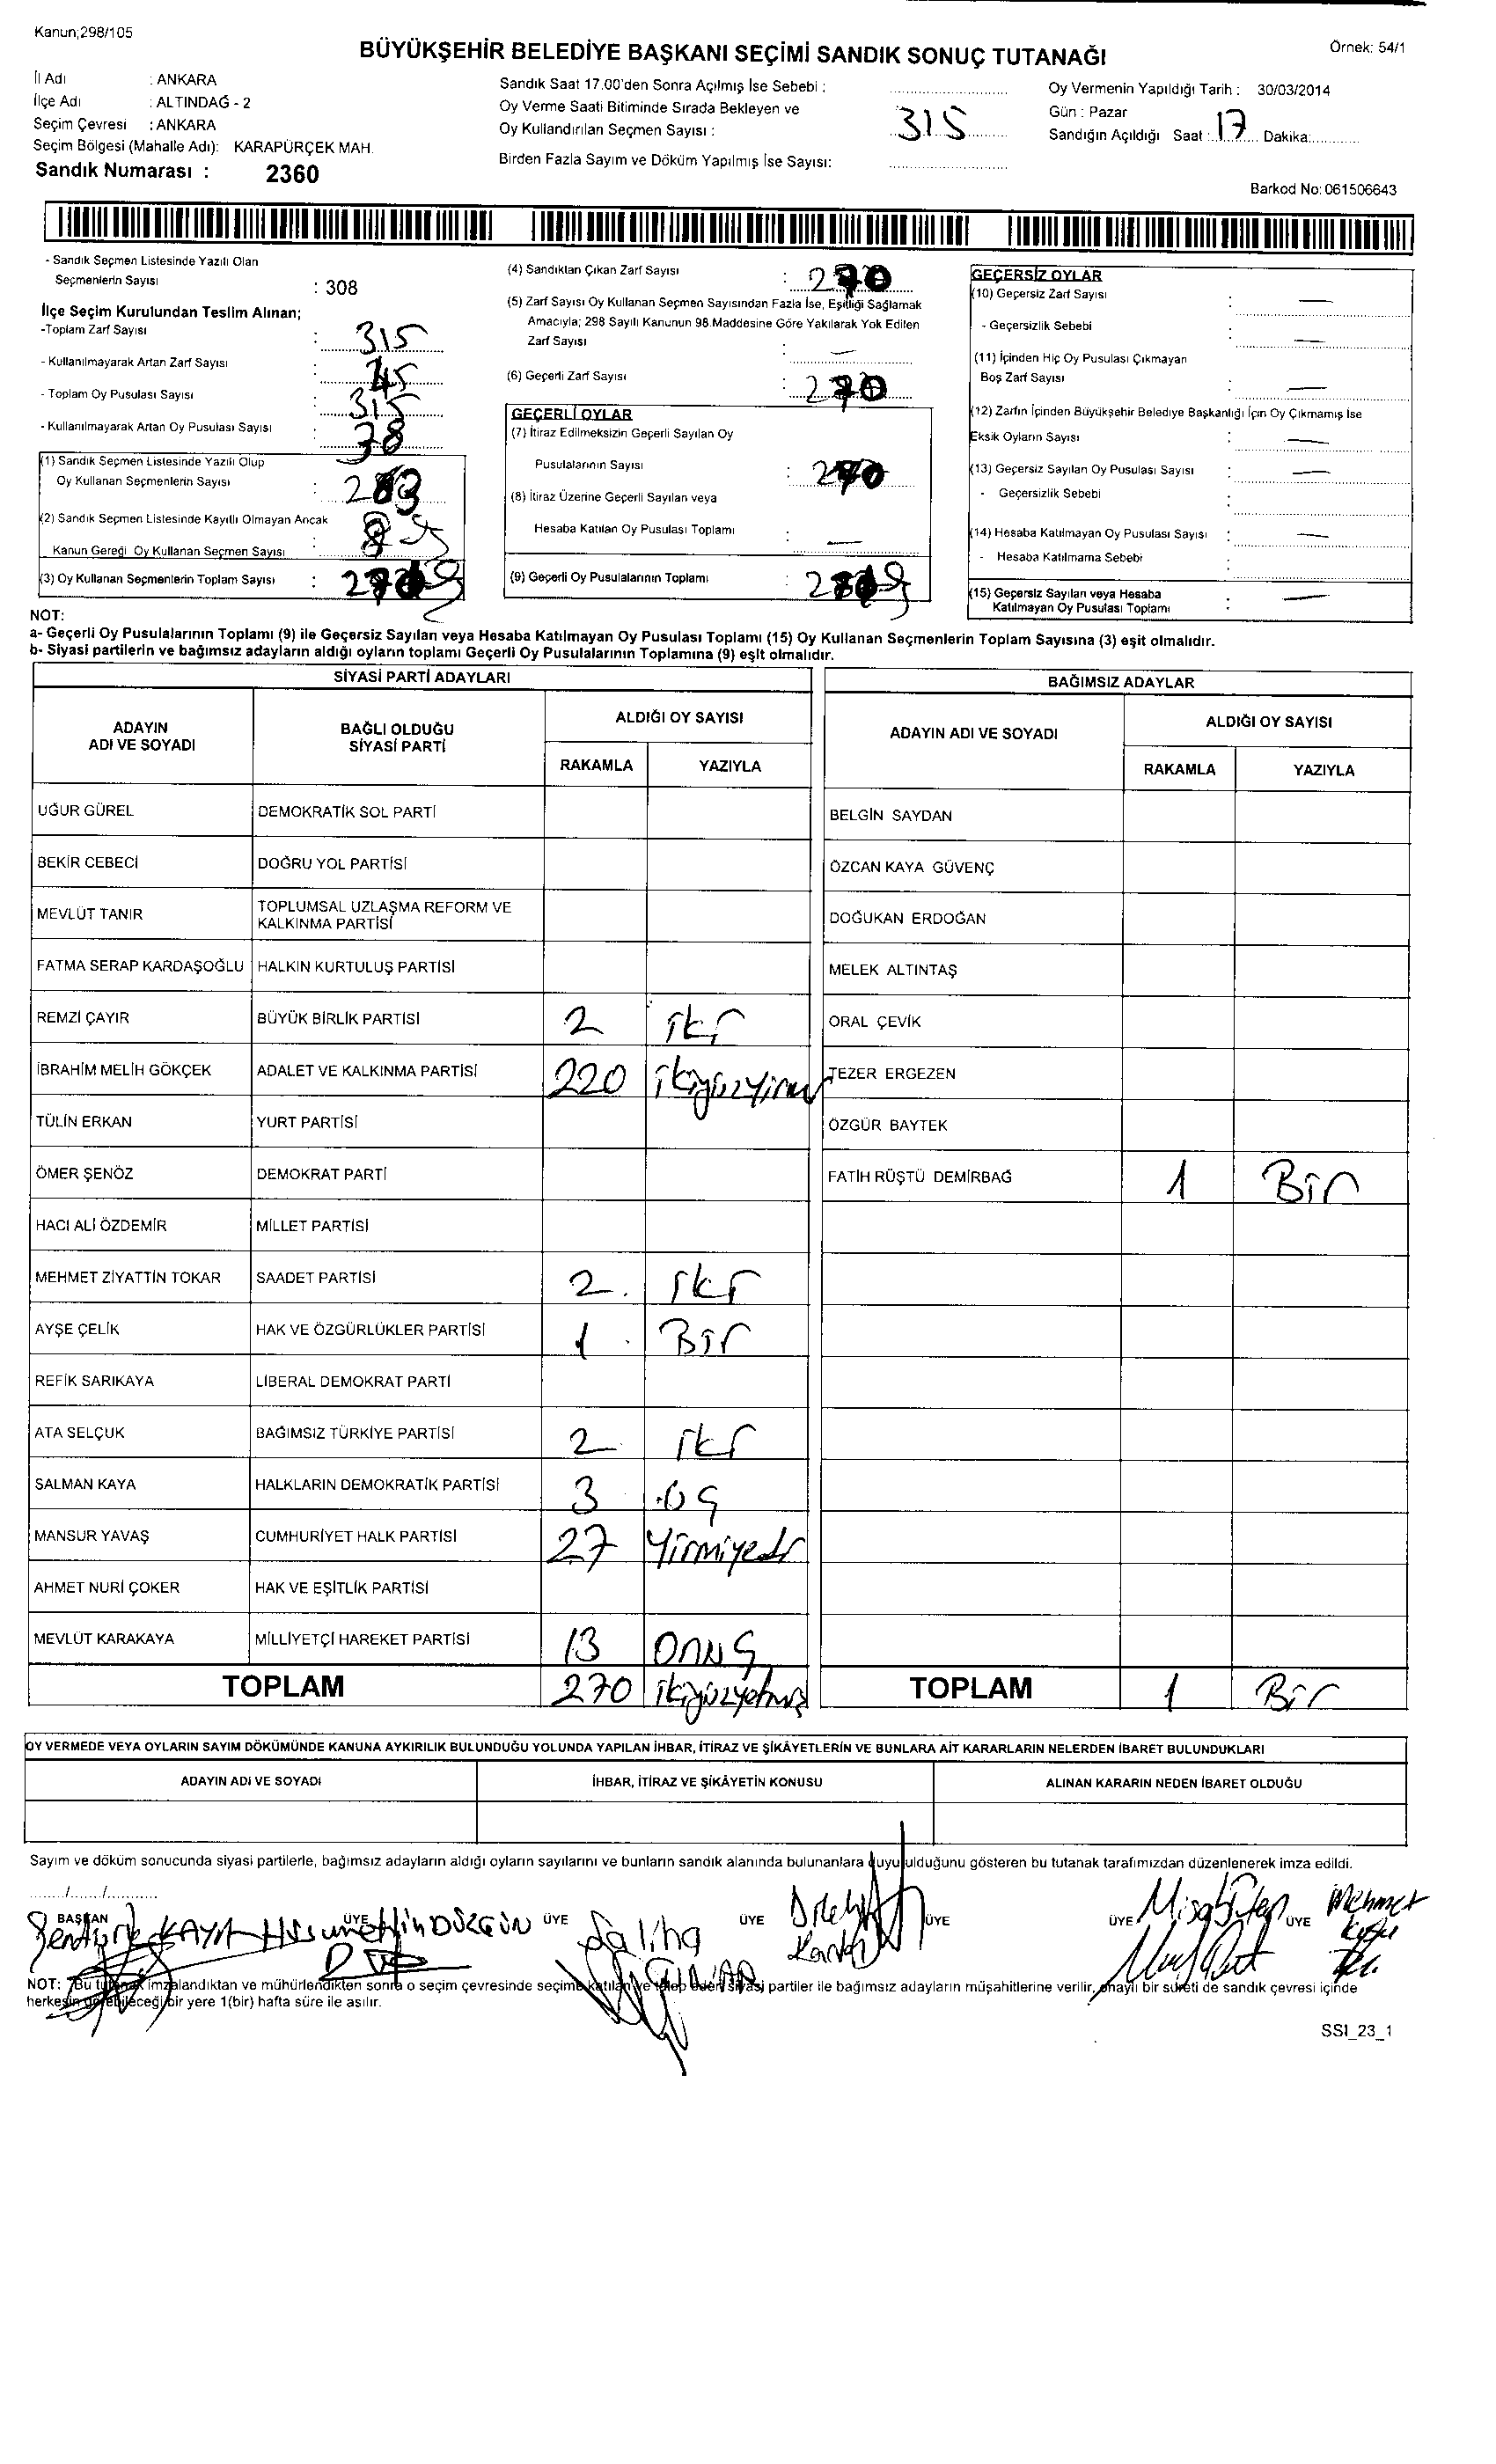 Kanun;298/105
BÜYÜKŞEHİR BELEDİYE BAŞKANI SEÇİMİ SANDIK SONUÇ TUTANAĞI
Örnek: 54/1
İl Adı : ANKARA
İlçe Adı : ALTINDAĞ - 2
Seçim Çevresi : ANKARA
Seçim Bölgesi (Mahalle Adı): KARAPÜRÇEK MAH.
Sandık Numarası : 2360
Sandık Saat 17.00'den Sonra Açılmış İse Sebebi :
Oy Verme Saati Bitiminde Sırada Bekleyen ve
Oy Kullandırılan Seçmen Sayısı : 315
Birden Fazla Sayım ve Döküm Yapılmış İse Sayısı:
Oy Vermenin Yapıldığı Tarih : 30/03/2014
Gün : Pazar
Sandığın Açıldığı Saat : 17 Dakika:
Barkod No: 061506643
- Sandık Seçmen Listesinde Yazılı Olan
Seçmenlerin Sayısı : 308
İlçe Seçim Kurulundan Teslim Alınan;
-Toplam Zarf Sayısı : 315
- Kullanılmayarak Artan Zarf Sayısı : 45
- Toplam Oy Pusulası Sayısı : 315
- Kullanılmayarak Artan Oy Pusulası Sayısı : 38
(1) Sandık Seçmen Listesinde Yazılı Olup
Oy Kullanan Seçmenlerin Sayısı :
(2) Sandık Seçmen Listesinde Kayıtlı Olmayan Ancak
Kanun Gereği Oy Kullanan Seçmen Sayısı :
(3) Oy Kullanan Seçmenlerin Toplam Sayısı :
(4) Sandıktan Çıkan Zarf Sayısı : 270
(5) Zarf Sayısı Oy Kullanan Seçmen Sayısından Fazla İse, Eşitliği Sağlamak
Amacıyla; 298 Sayılı Kanunun 98.Maddesine Göre Yakılarak Yok Edilen
Zarf Sayısı : —
(6) Geçerli Zarf Sayısı : 270
GEÇERLİ OYLAR
(7) İtiraz Edilmeksizin Geçerli Sayılan Oy
Pusulalarının Sayısı : 270
(8) İtiraz Üzerine Geçerli Sayılan veya
Hesaba Katılan Oy Pusulası Toplamı : —
(9) Geçerli Oy Pusulalarının Toplamı :
GEÇERSİZ OYLAR
(10) Geçersiz Zarf Sayısı : —
- Geçersizlik Sebebi : —
(11) İçinden Hiç Oy Pusulası Çıkmayan
Boş Zarf Sayısı : —
(12) Zarfın İçinden Büyükşehir Belediye Başkanlığı İçin Oy Çıkmamış İse
Eksik Oyların Sayısı : —
(13) Geçersiz Sayılan Oy Pusulası Sayısı : —
- Geçersizlik Sebebi :
(14) Hesaba Katılmayan Oy Pusulası Sayısı : —
- Hesaba Katılmama Sebebi :
(15) Geçersiz Sayılan veya Hesaba
Katılmayan Oy Pusulası Toplamı : —
NOT:
a- Geçerli Oy Pusulalarının Toplamı (9) ile Geçersiz Sayılan veya Hesaba Katılmayan Oy Pusulası Toplamı (15) Oy Kullanan Seçmenlerin Toplam Sayısına (3) eşit olmalıdır.
b- Siyasi partilerin ve bağımsız adayların aldığı oyların toplamı Geçerli Oy Pusulalarının Toplamına (9) eşit olmalıdır.
SİYASİ PARTİ ADAYLARI
ADAYIN ADI VE SOYADI
BAĞLI OLDUĞU SİYASİ PARTİ
ALDIĞI OY SAYISI
RAKAMLA YAZIYLA
UĞUR GÜREL DEMOKRATİK SOL PARTİ
BEKİR CEBECİ DOĞRU YOL PARTİSİ
MEVLÜT TANIR TOPLUMSAL UZLAŞMA REFORM VE
KALKINMA PARTİSİ
FATMA SERAP KARDAŞOĞLU HALKIN KURTULUŞ PARTİSİ
REMZİ ÇAYIR BÜYÜK BİRLİK PARTİSİ 2 iki
İBRAHİM MELİH GÖKÇEK ADALET VE KALKINMA PARTİSİ 220 ikiyüzyirmi
TÜLİN ERKAN YURT PARTİSİ
ÖMER ŞENÖZ DEMOKRAT PARTİ
HACI ALİ ÖZDEMİR MİLLET PARTİSİ
MEHMET ZİYATTİN TOKAR SAADET PARTİSİ 2 iki
AYŞE ÇELİK HAK VE ÖZGÜRLÜKLER PARTİSİ 1 Bir
REFİK SARIKAYA LİBERAL DEMOKRAT PARTİ
ATA SELÇUK BAĞIMSIZ TÜRKİYE PARTİSİ 2 iki
SALMAN KAYA HALKLARIN DEMOKRATİK PARTİSİ 3 üç
MANSUR YAVAŞ CUMHURİYET HALK PARTİSİ 27 Yirmiyedi
AHMET NURİ ÇOKER HAK VE EŞİTLİK PARTİSİ
MEVLÜT KARAKAYA MİLLİYETÇİ HAREKET PARTİSİ 13 onüç
TOPLAM 270 ikiyüzyetmiş
BAĞIMSIZ ADAYLAR
ADAYIN ADI VE SOYADI
ALDIĞI OY SAYISI
RAKAMLA YAZIYLA
BELGİN SAYDAN
ÖZCAN KAYA GÜVENÇ
DOĞUKAN ERDOĞAN
MELEK ALTINTAŞ
ORAL ÇEVİK
TEZER ERGEZEN
ÖZGÜR BAYTEK
FATİH RÜŞTÜ DEMİRBAĞ 1 Bir
TOPLAM 1 Bir
OY VERMEDE VEYA OYLARIN SAYIM DÖKÜMÜNDE KANUNA AYKIRILIK BULUNDUĞU YOLUNDA YAPILAN İHBAR, İTİRAZ VE ŞİKÂYETLERİN VE BUNLARA AİT KARARLARIN NELERDEN İBARET BULUNDUKLARI
ADAYIN ADI VE SOYADI İHBAR, İTİRAZ VE ŞİKÂYETİN KONUSU ALINAN KARARIN NEDEN İBARET OLDUĞU
Sayım ve döküm sonucunda siyasi partilerle, bağımsız adayların aldığı oyların sayılarını ve bunların sandık alanında bulunanlara duyurulduğunu gösteren bu tutanak tarafımızdan düzenlenerek imza edildi.
......./......./...........
BAŞKAN ÜYE ÜYE ÜYE ÜYE ÜYE ÜYE
KAYA Hüsamettin DÜZGÜN Saliha Mehmet
NOT: Bu tutanak imzalandıktan ve mühürlendikten sonra o seçim çevresinde seçime katılan ve talep eden siyasi partiler ile bağımsız adayların müşahitlerine verilir, onaylı bir sureti de sandık çevresi içinde
herkesin görebileceği bir yere 1(bir) hafta süre ile asılır.
SSI_23_1